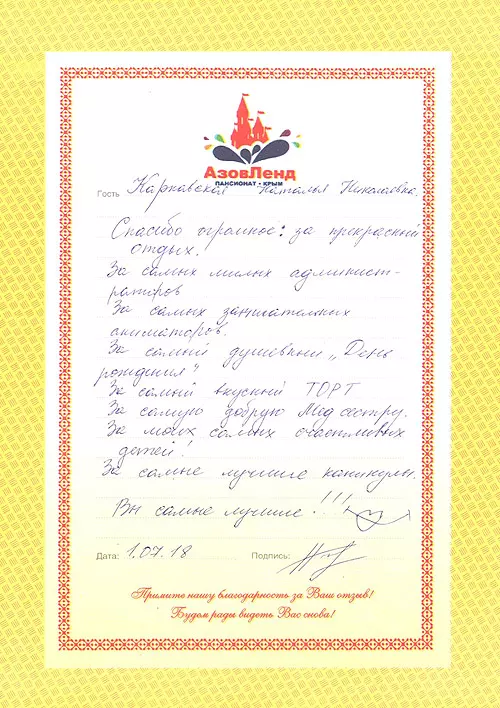 АзовЛенд
ПАНСИОНАТ • КРЫМ
Гость Карнавская Наталья Николаевна.
Спасибо огромное: за прекрасный
отдых.
За самых милых админист-
раторов
За самых занимательных
аниматоров.
За самый душевный „День
рождения"
За самый вкусный ТОРТ
За самую добрую Мед сестру.
За моих самых счастливых
детей!
За самые лучшие каникулы.
Вы самые лучшие!!!
Дата: 1.07.18 Подпись:
Примите нашу благодарность за Ваш отзыв!
Будем рады видеть Вас снова!